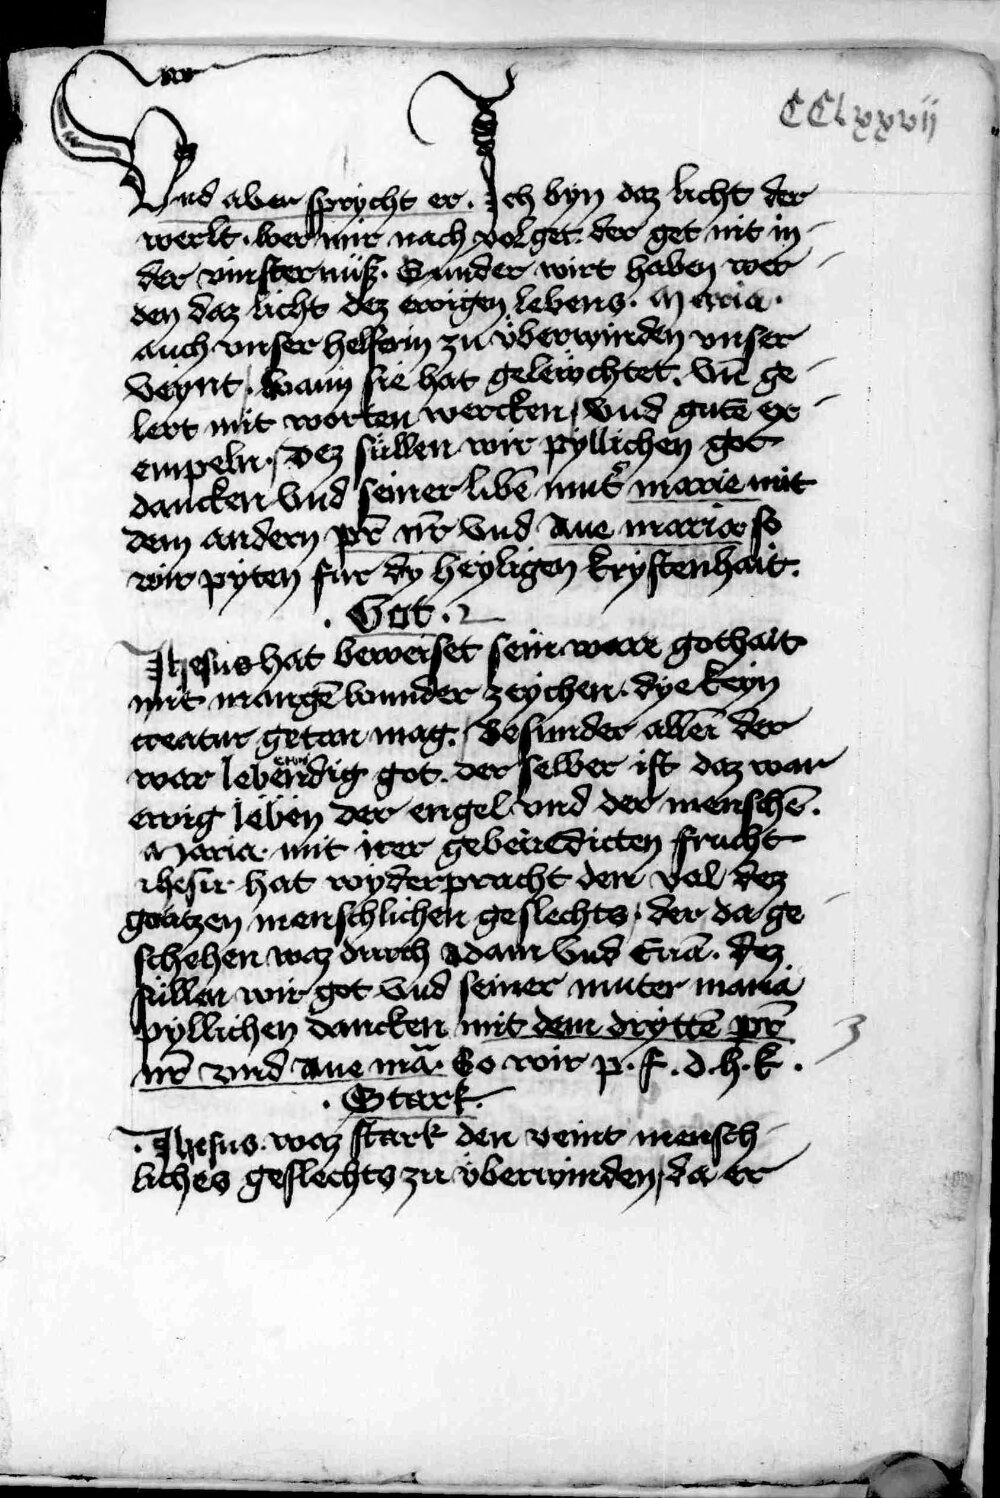 CCLxxvii
Vnd aber sprycht er. Ich byn daz licht der
werlt. wer mir nach volget. der get nit in
der vinsternüß. Sunder wirt haben wer
den daz licht dez ewigen lebens. Maria.
auch vnser helferin zu überwinden vnser
veynt. wann sie hat geleuchtet. vn̄ ge
lert mit worten wercken, vnd gutē ex
empeln. dez süllen wir pyllichen got
dancken vnd seiner libē mut̄ marie mit
dem andern pr̄ nr̄ vnd Aue maria so
wir pyten fur dy heyligen krystenhait.
. Got . 2
Jhesus hat beweiset sein ware gothait
mit mangē wunder zeychen. dye keyn
creatur getun mag. besunder allein der
war lebendig got. der selber ist daz war
ewig leben der engel vnd der menschē.
Maria. mit irer gebenedicten frucht
ihesu hat wyderpracht den val dez
gantzen menschlichen geslechts, der da ge
schehen waz durch Adam vnd Euā. dez
süllen wir got vnd seiner muter maria
pyllichen dancken mit dem dryttē pr̄ 3
nr̄ vnd Aue mā. So wir p. f. d. h. k .
. Stark.
. Jhesus. waz stark den veint mensch
liches geslechts zu überwinden, da er